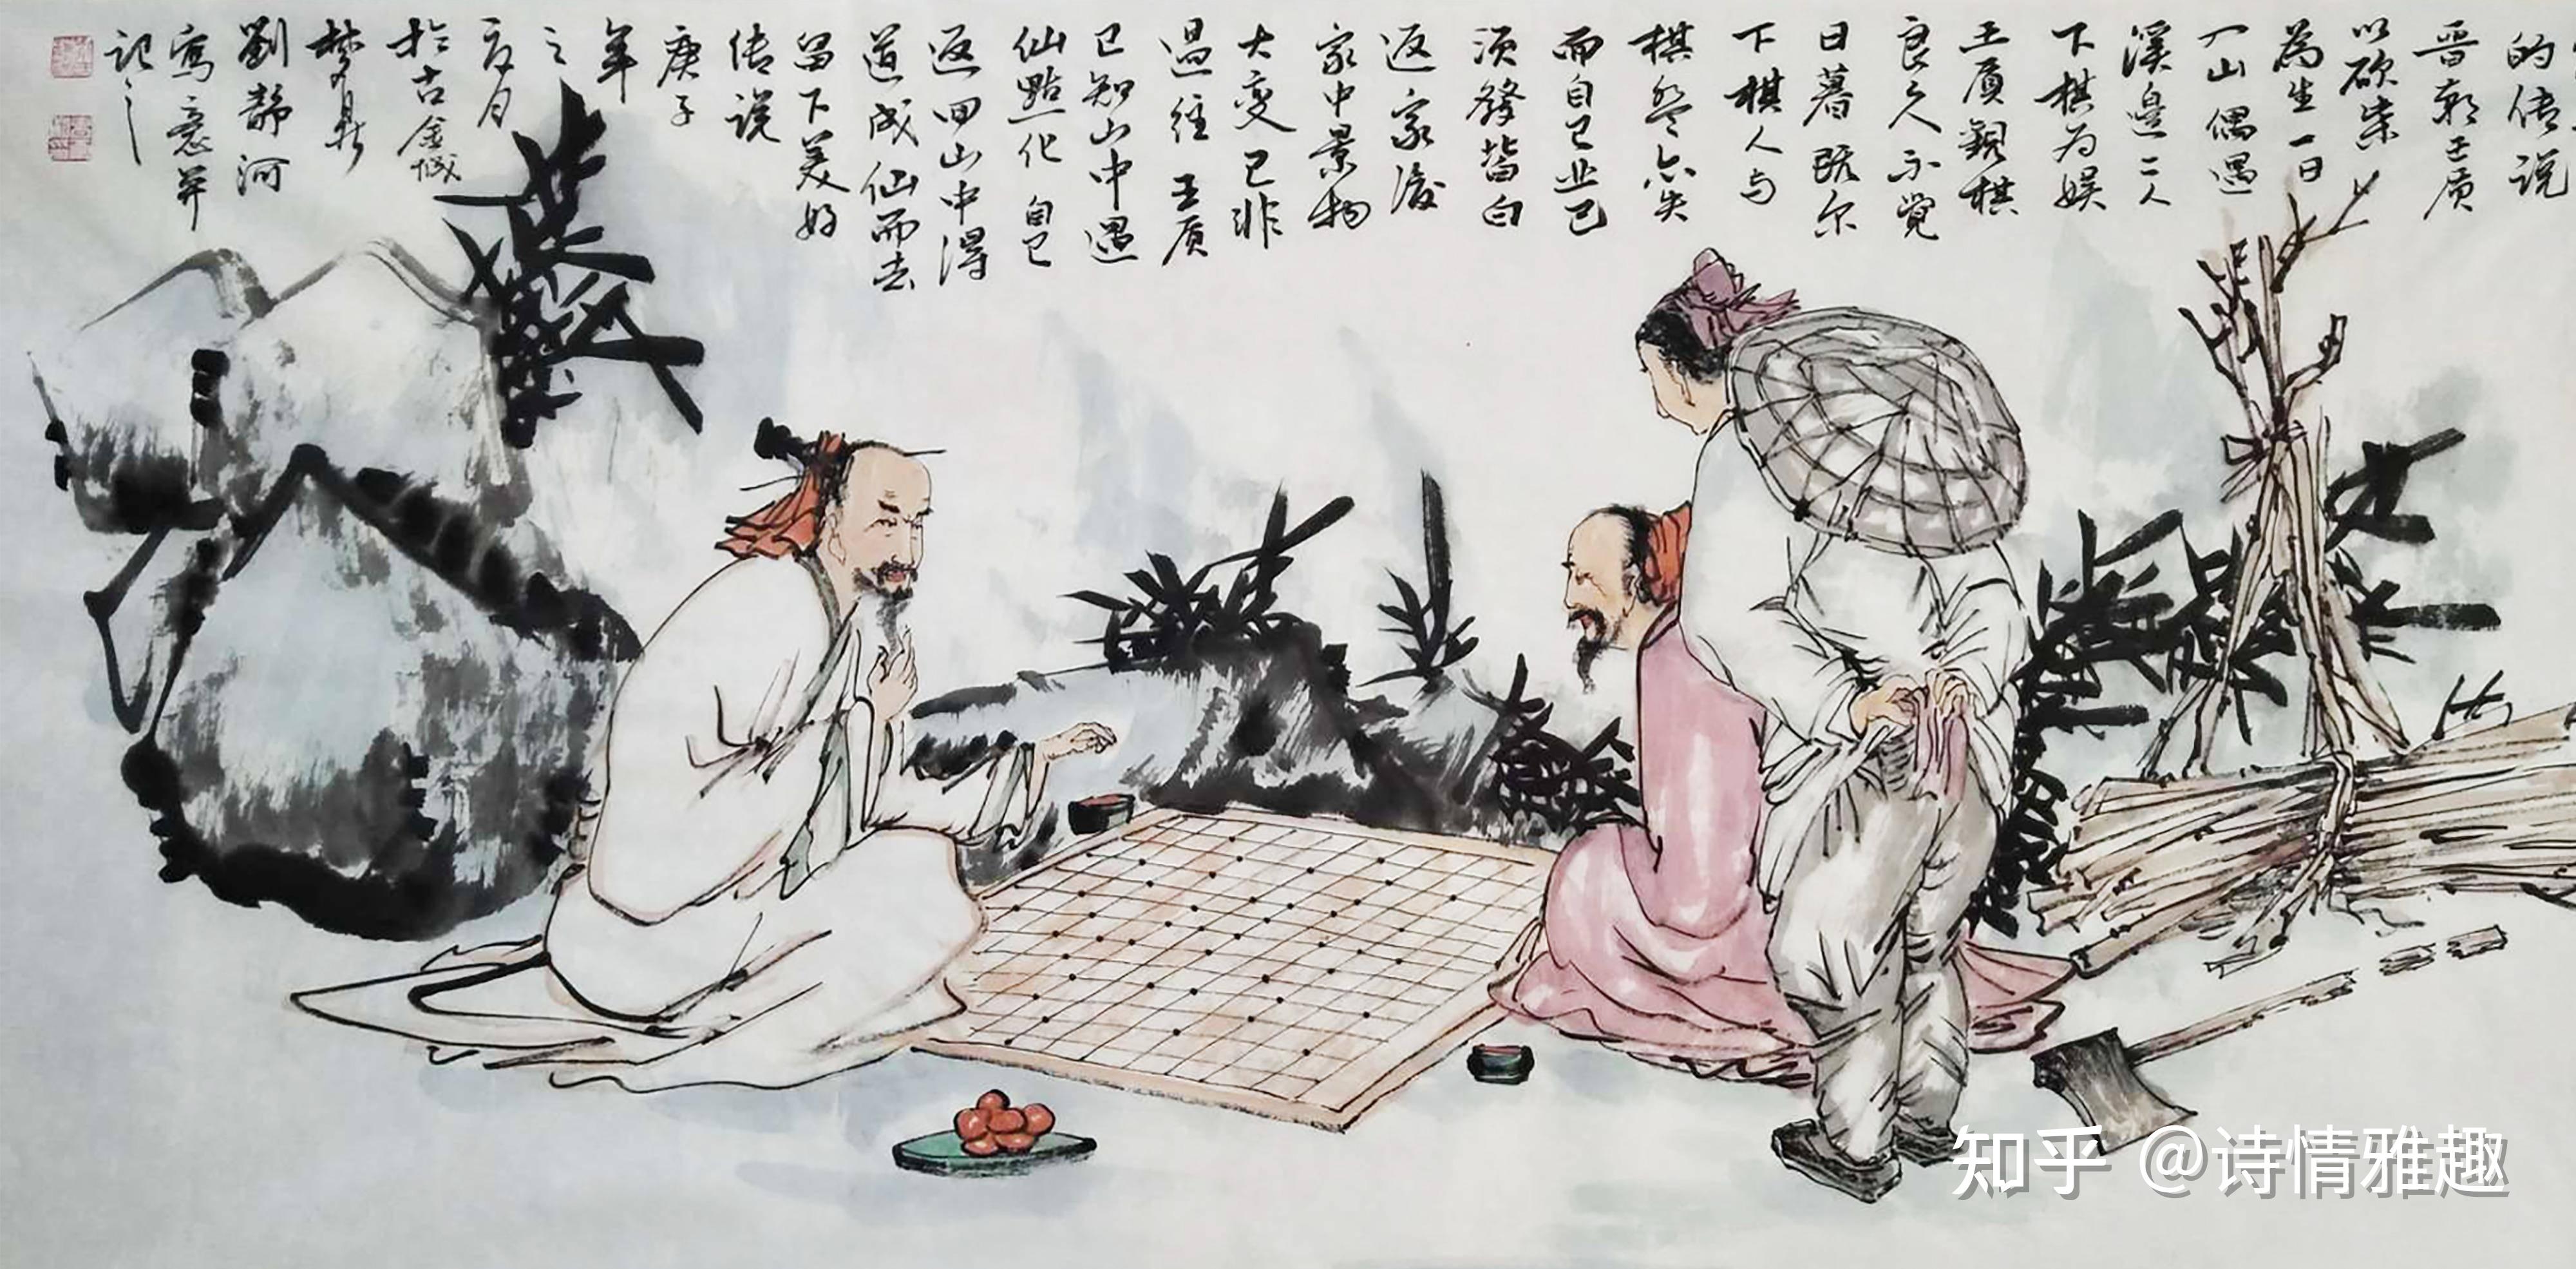 的传说
晋朝王质
以砍柴
为生一日
入山偶遇
溪边二人
下棋为娱
王质觀棋
良久不觉
日暮既尔
下棋人与
棋盘亦失
而自己业已
须發皆白
返家後
家中景物
大变已非
過往王质
已知山中遇
仙點化自己
返回山中得
道成仙而去
留下美好
传说
庚子
年
之
夏月
於古金城
梦泉斋
劉静河
寫意并
記之
知乎 @诗情雅趣